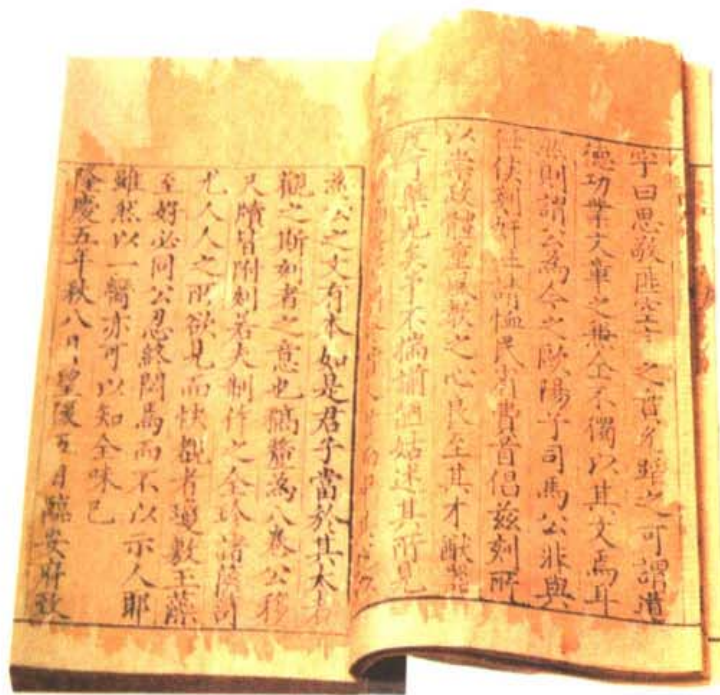 宇曰思敬匪空言之責允蹈之可謂道
德功業文章之兼全不獨以其文焉耳
然則謂公為今之歐陽子司馬公非與
侯刻 恤民 費首倡茲刻所
以崇政體重風教之心良至其才猷
度可 見矣予不揣謭陋姑述其所見
公之文有本如是君子當於其本者
觀之斯刻者之意也稿釐為八卷公移
尺牘皆附刻若夫制作之全珍諸篋笥
尤人人之所欲見而快覩者 數
至好必同公忍終閟焉而不以示人耶
雖然以一臠亦可以知全味已
隆慶五年秋八月望後五日臨安府致